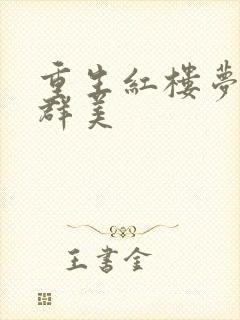 重生紅樓夢
群美
王書金